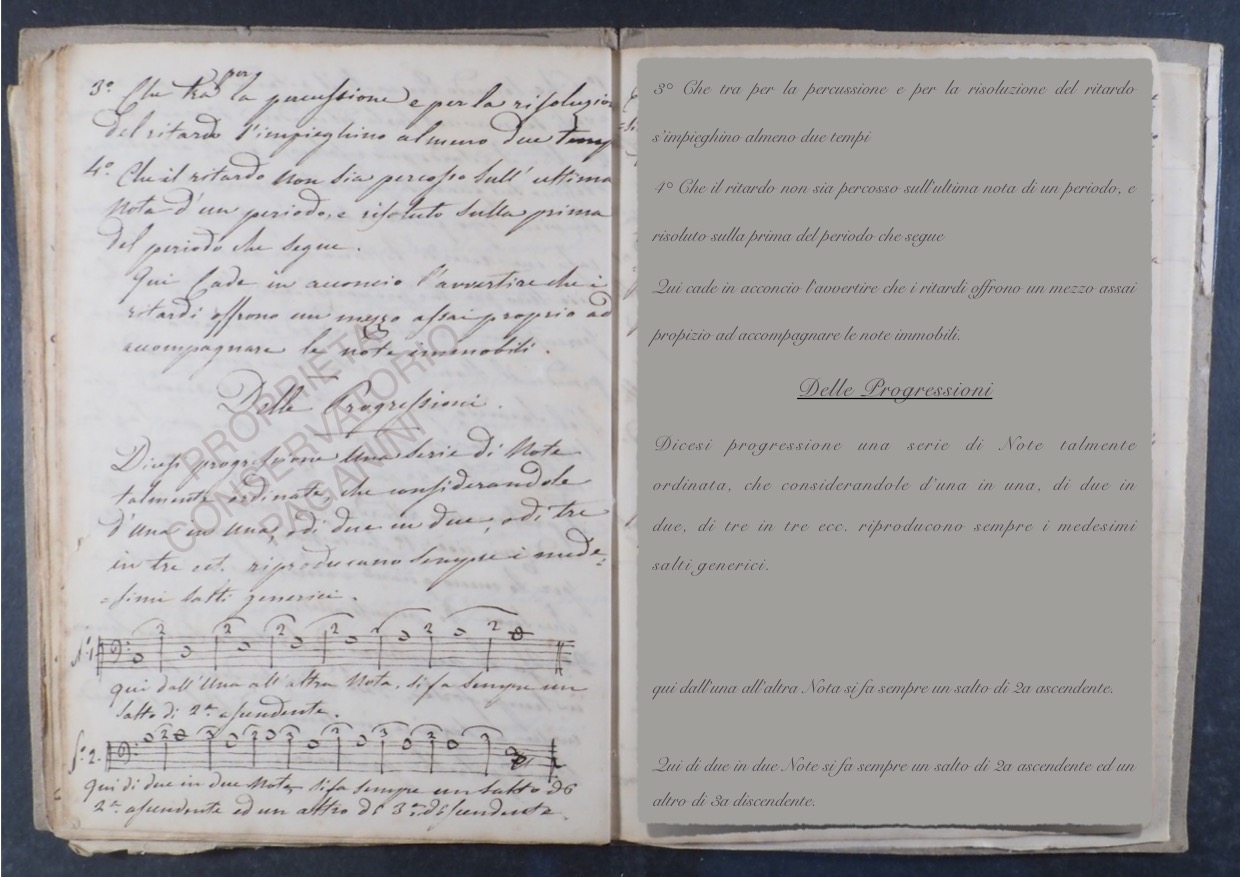 3° Che tra per la percussione e per la risoluzion
del ritardo s'impieghino almeno due temp
4° Che il ritardo non sia percosso sull'ultima
nota d'un periodo, e risoluto sulla prima
del periodo che segue.
Qui Cade in acconcio l'avvertire che i
ritardi offrono un mezzo assai proprio ad
accompagnare le note immobili.
Delle Progressioni.
Dicesi progressione una serie di Note
talmente ordinate, che considerandole
d'una in una, o di due in due, o di tre
in tre ect. riproducano sempre i mede=
=simi salti generici.
N° 1
2 2 2 2 2 2
qui dall'una all'altra Nota, si fa sempre un
salto di 2ª ascendente.
2.
2 3 2 3 2 3
Qui di due in due Note si fa sempre un salto di
2ª ascendente ed un altro di 3ª discendente.
PROPRIETÀ
CONSERVATORIO
PAGANINI
3° Che tra per la percussione e per la risoluzione del ritardo
s'impieghino almeno due tempi
4° Che il ritardo non sia percosso sull'ultima nota di un periodo, e
risoluto sulla prima del periodo che segue
Qui cade in acconcio l'avvertire che i ritardi offrono un mezzo assai
propizio ad accompagnare le note immobili.
Delle Progressioni
Dicesi progressione una serie di Note talmente
ordinata, che considerandole d'una in una, di due in
due, di tre in tre ecc. riproducono sempre i medesimi
salti generici.
qui dall'una all'altra Nota si fa sempre un salto di 2a ascendente.
Qui di due in due Note si fa sempre un salto di 2a ascendente ed un
altro di 3a discendente.